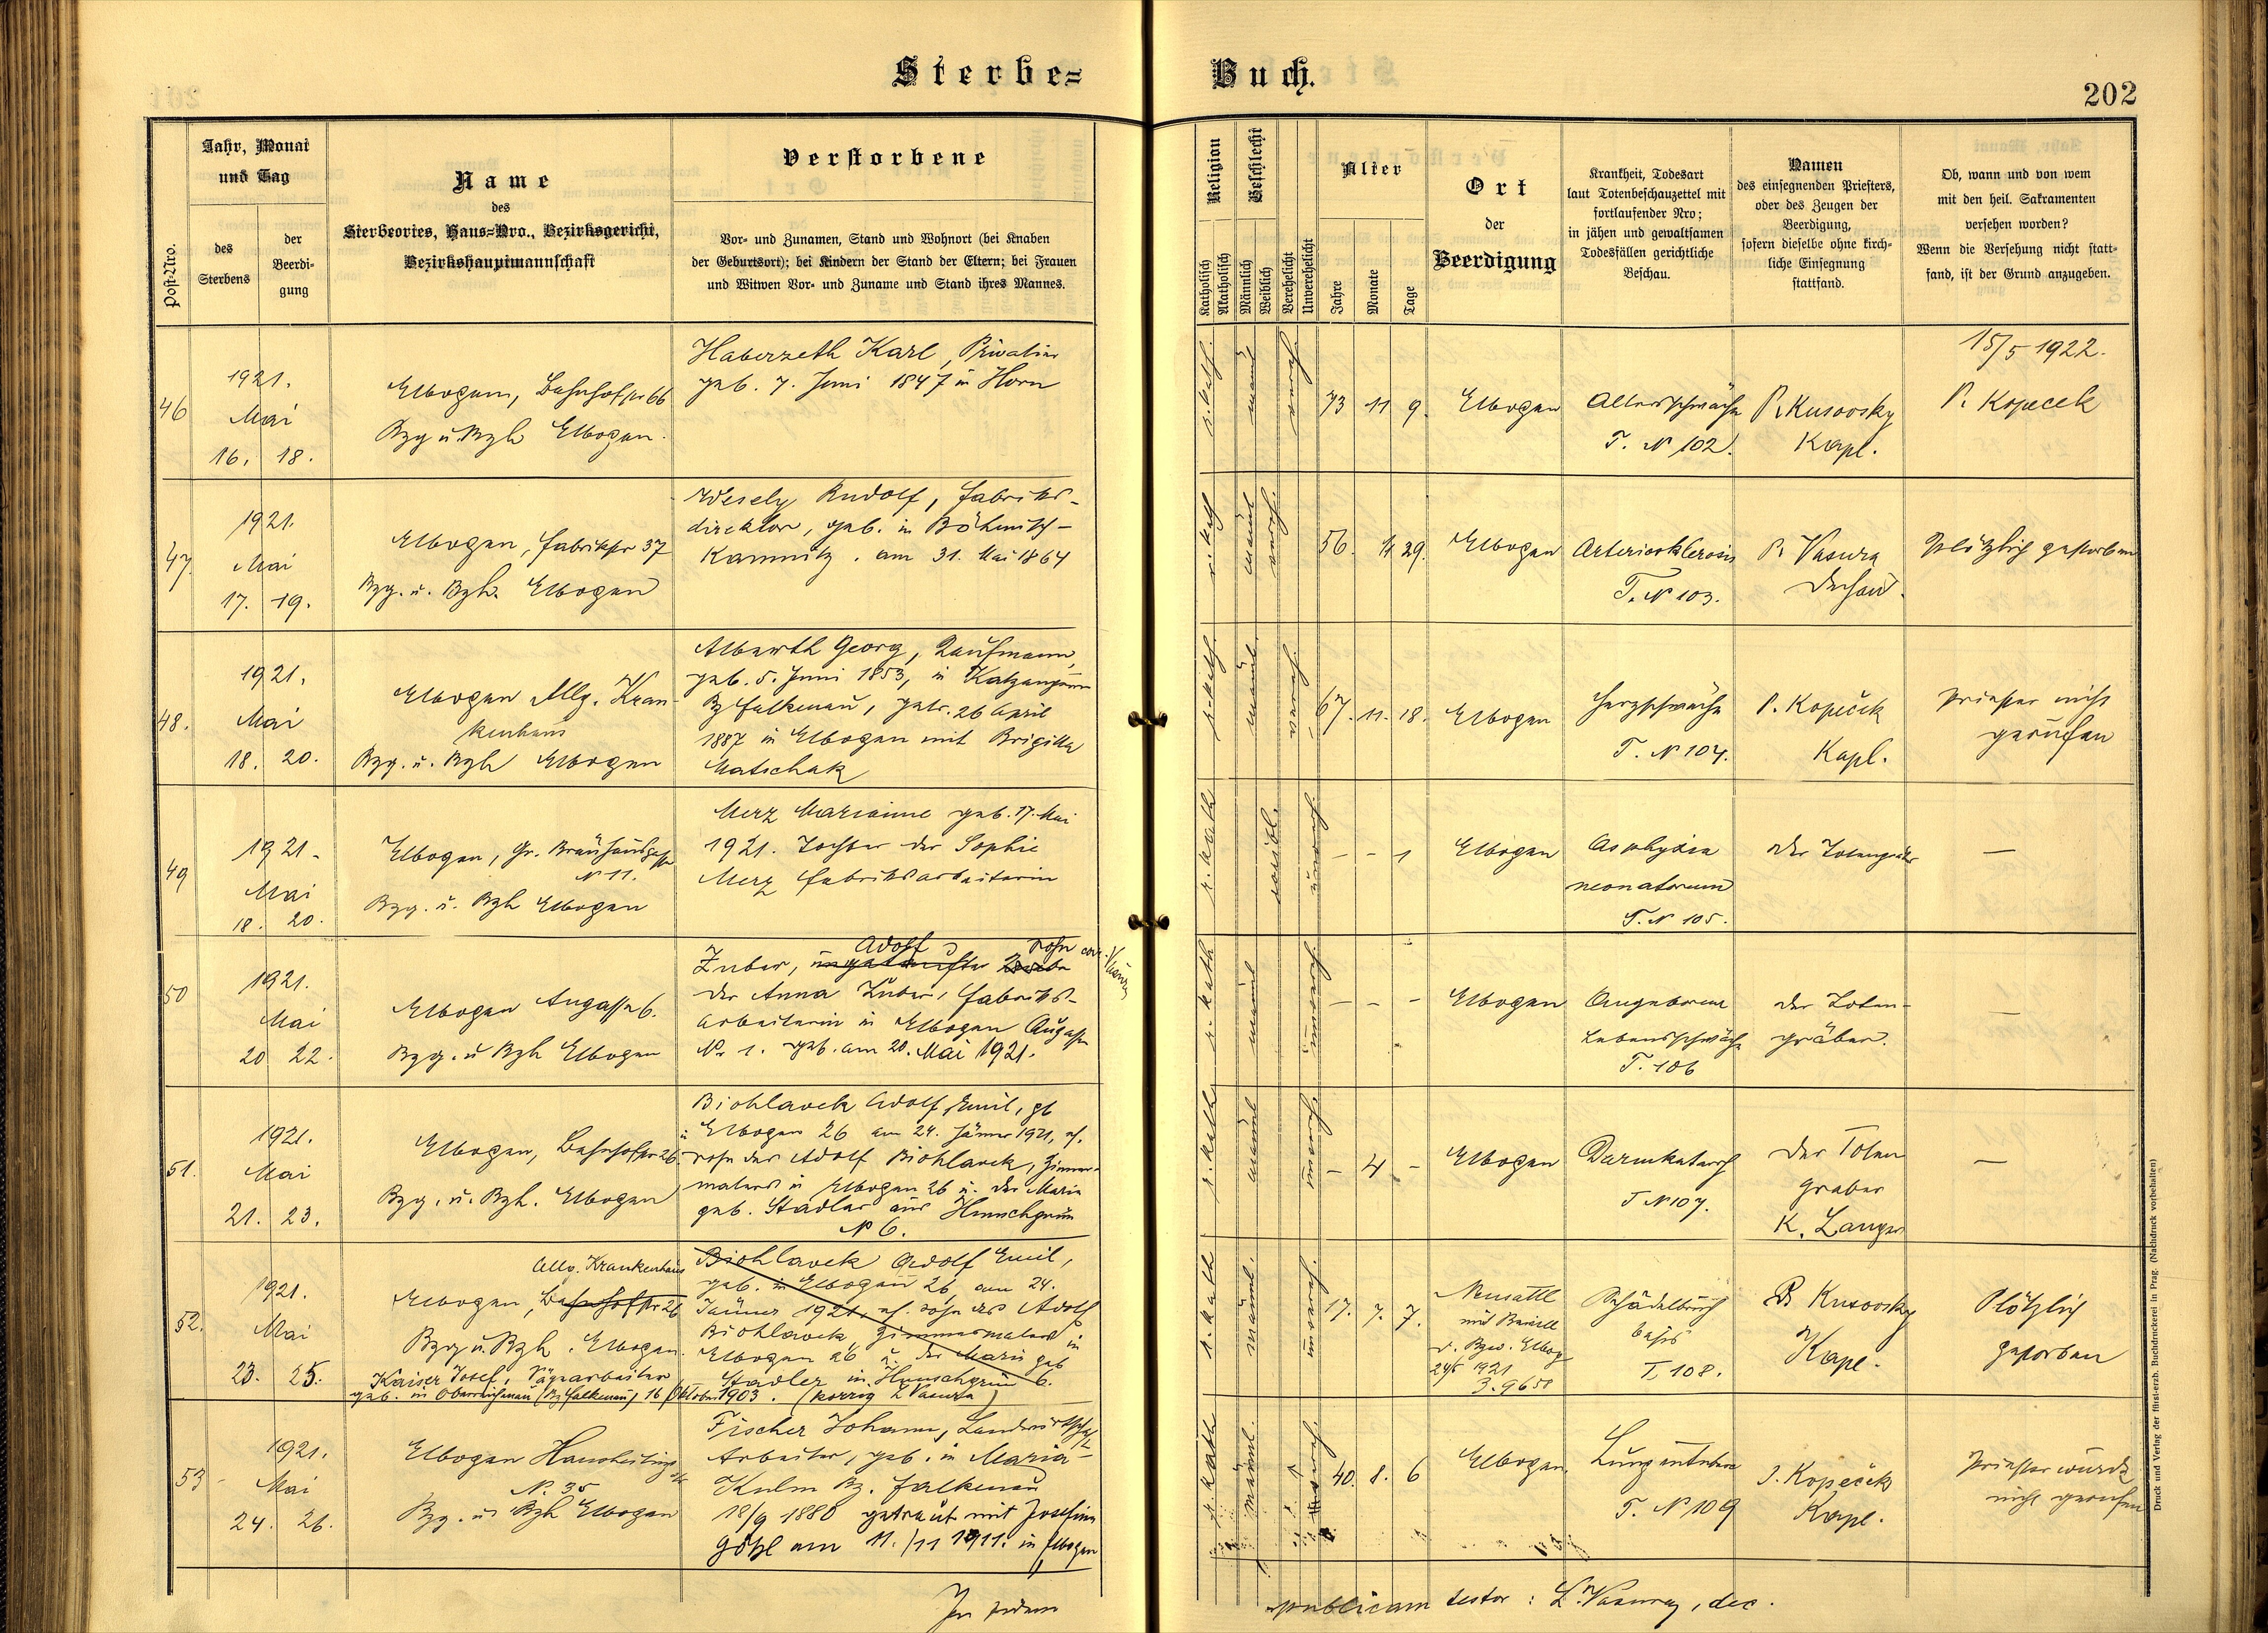 Sterbe-
Buch.
202
Post-Nro.
Jahr, Monat
und Tag
des
Sterbens
der
Beerdi-
gung
Name
des
Sterbeortes, Haus-Nro., Bezirksgericht,
Bezirkshauptmannschaft
Verstorbene
Vor- und Zunamen, Stand und Wohnort (bei Knaben
der Geburtsort); bei Kindern der Stand der Eltern; bei Frauen
und Witwen Vor- und Zuname und Stand ihres Mannes.
Religion
Katholisch
Akatholisch
Geschlecht
Männlich
Weiblich
Verehelicht
Unverehelicht
Alter
Jahre
Monate
Tage
Ort
der
Beerdigung
Krankheit, Todesart
laut Totenbeschauzettel mit
fortlaufender Nro;
in jähen und gewaltsamen
Todesfällen gerichtliche
Beschau.
Namen
des einsegnenden Priesters,
oder des Zeugen der
Beerdigung,
sofern dieselbe ohne kirch-
liche Einsegnung
stattfand.
Ob, wann und von wem
mit den heil. Sakramenten
versehen worden?
Wenn die Versehung nicht statt-
fand, ist der Grund anzugeben.
46
1921.
Mai
16. 18.
Elbogen, Bahnhofstr 66
Bzg u. Bzh Elbogen.
Haberzeth Karl, Privatier
geb. 7. Juni 1847 in Horn
r. kath.
männl.
vereh.
73 11 9.
Elbogen
Altersschwäche
T. N 102.
P. Kusovsky
Kapl.
15/5 1922.
P. Kopecek
47
1921.
Mai
17. 19.
Elbogen, Fabrikstr 37
Bzg. u. Bzh. Elbogen
Wesely Rudolf, Fabriks-
direktor, geb. in Böhmisch-
Kamnitz. am 31. Mai 1864
r. kath
männl
vereh.
56. 29.
Elbogen
Arteriosklerosis
T. N 103.
P. Vasura
Dechant.
Plötzlich gestorben
48.
1921.
Mai
18. 20.
Elbogen Allg. Kran-
kenhaus
Bzg. u. Bzh Elbogen
Alberth Georg, Kaufmann,
geb. 5. Juni 1853, in Katzengrün
Bz Falkenau, getr. 26 April
1887 in Elbogen mit Brigitta
Matschak
r. kath.
männl.
vereh.
67. 11. 18.
Elbogen
Herzschwäche
T. N 104.
P. Kopeček
Kapl.
Priester nicht
gerufen
49
1921.
Mai
18. 20.
Elbogen, Gr. Bräuhausgasse
N 11.
Bzg. u. Bzh Elbogen
Merz Marianne geb. 17. Mai
1921. Tochter der Sophie
Merz Fabriksarbeiterin
r. kath
weibl.
unverh
- - 1
Elbogen
Asphyxia
neonatorum
T. N 105.
Der Totengräber
—
50
1921.
Mai
20 22.
Elbogen Augasse 6.
Bzg. u Bzh Elbogen
Adolf Sohn corr. Vasura
Zuber, ungetaufter Knabe
der Anna Zuber, Fabriks-
arbeiterin in Elbogen Augasse
Nr 1. geb. am 20. Mai 1921.
r. kath
männl
unverh
- - -
Elbogen
Angeborene
Lebensschwäche
T. 106
der Toten-
gräber.
—
51.
1921.
Mai
21. 23.
Elbogen, Bahnhofstr 26.
Bzg. u. Bzh. Elbogen
Biohlavek Adolf Emil, gb
in Elbogen 26 am 24. Jänner 1921, ehl.
Sohn des Adolf Biohlavek, Zimmer-
malers in Elbogen 26 u. der Marie
geb. Stadler aus Hunschgrün
N 6.
r. kath
männl
unverh
- 4 -
Elbogen
Darmkatarrh
T N 107.
der Toten
gräber
K. Langer
—
52.
1921.
Mai
23. 25.
Allg. Krankenhaus
Elbogen, Bahnhofstr 26
Bzg u. Bzh. Elbogen.
Biohlavek Adolf Emil,
geb. in Elbogen 26, am 24.
Jänner 1921. ehl. Sohn des Adolf
Biohlavek, Zimmermalers in
Elbogen 26 u. der Marie geb
Stadler in Hunschgrün 6.
Kaiser Josef, Sägearbeiter
geb. in (Bz Falkenau) 16 Oktober 1903. (korrig L Vasura)
r. kath
männl.
unverh
17. 7. 7.
Neusattl
mit Bewill
d. Bzw. Elbog
24/5 1921
3.9658
Schädelbruch
basis
T. 108.
P. Kusovsky
Kapl.
Plötzlich
gestorben
53
1921.
Mai
24. 26.
Elbogen Hausheiling
N. 35
Bzg. u Bzh Elbogen
Fischer Johann, Landwirtschaftl
Arbeiter, geb. in Maria-
Kulm Bz. Falkenau
18/9 1880 getraut mit Josefine
Gößl am 11./11 1911. in Elbogen
r. kath
männl.
40. 8. 6
Elbogen.
T. N 109
P. Kopeček
Kapl.
Priester wurde
nicht gerufen
In fidem
publicam testor: L. Vasura, dec.
Druck und Verlag der fürst-erzb. Buchdruckerei in Prag. (Nachdruck vorbehalten)